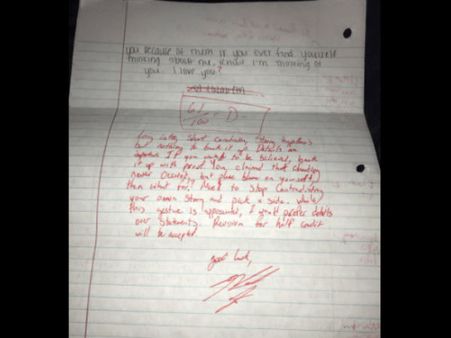 you because of them if you ever find yourself
thinking about me, know I'm thinking of
you. I love you?
61
100 = D-
Long intro, Short conclusion, Strong hypothesis
but nothing to back it up. Details are
important. If you want to be believed, back
it up with proof. You claimed that cheating
never occurred, but place blame on yourself,
then what for. Need to stop contradicting
your own story and pick a side. While
this gesture is appreciated, I prefer details
over statements. Revision for half credit
will be accepted
Good luck,